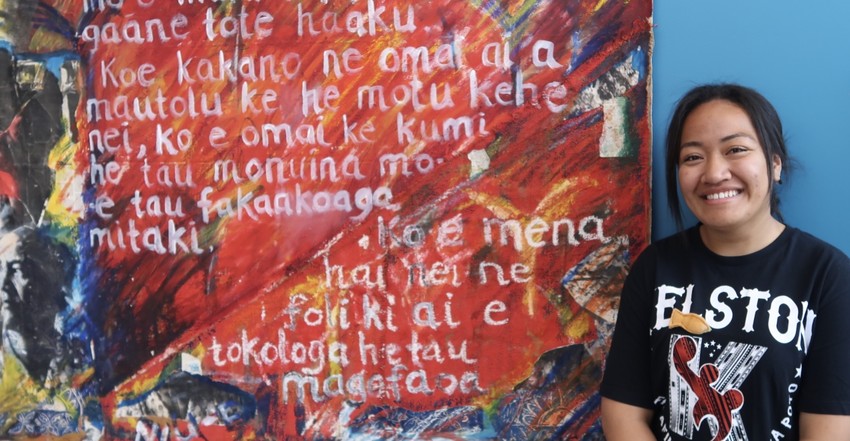 gaāne tote haaku.
Koe kakano ne omai ai a
mautolu ke he motu kehe
nei, ko e omai ke kumi
he tau monuina mo
e tau fakaakoaga
mitaki.
Ko e mena
hai nei ne
foliki ai e
tokologa he tau
magafaoa
ELSTON
K